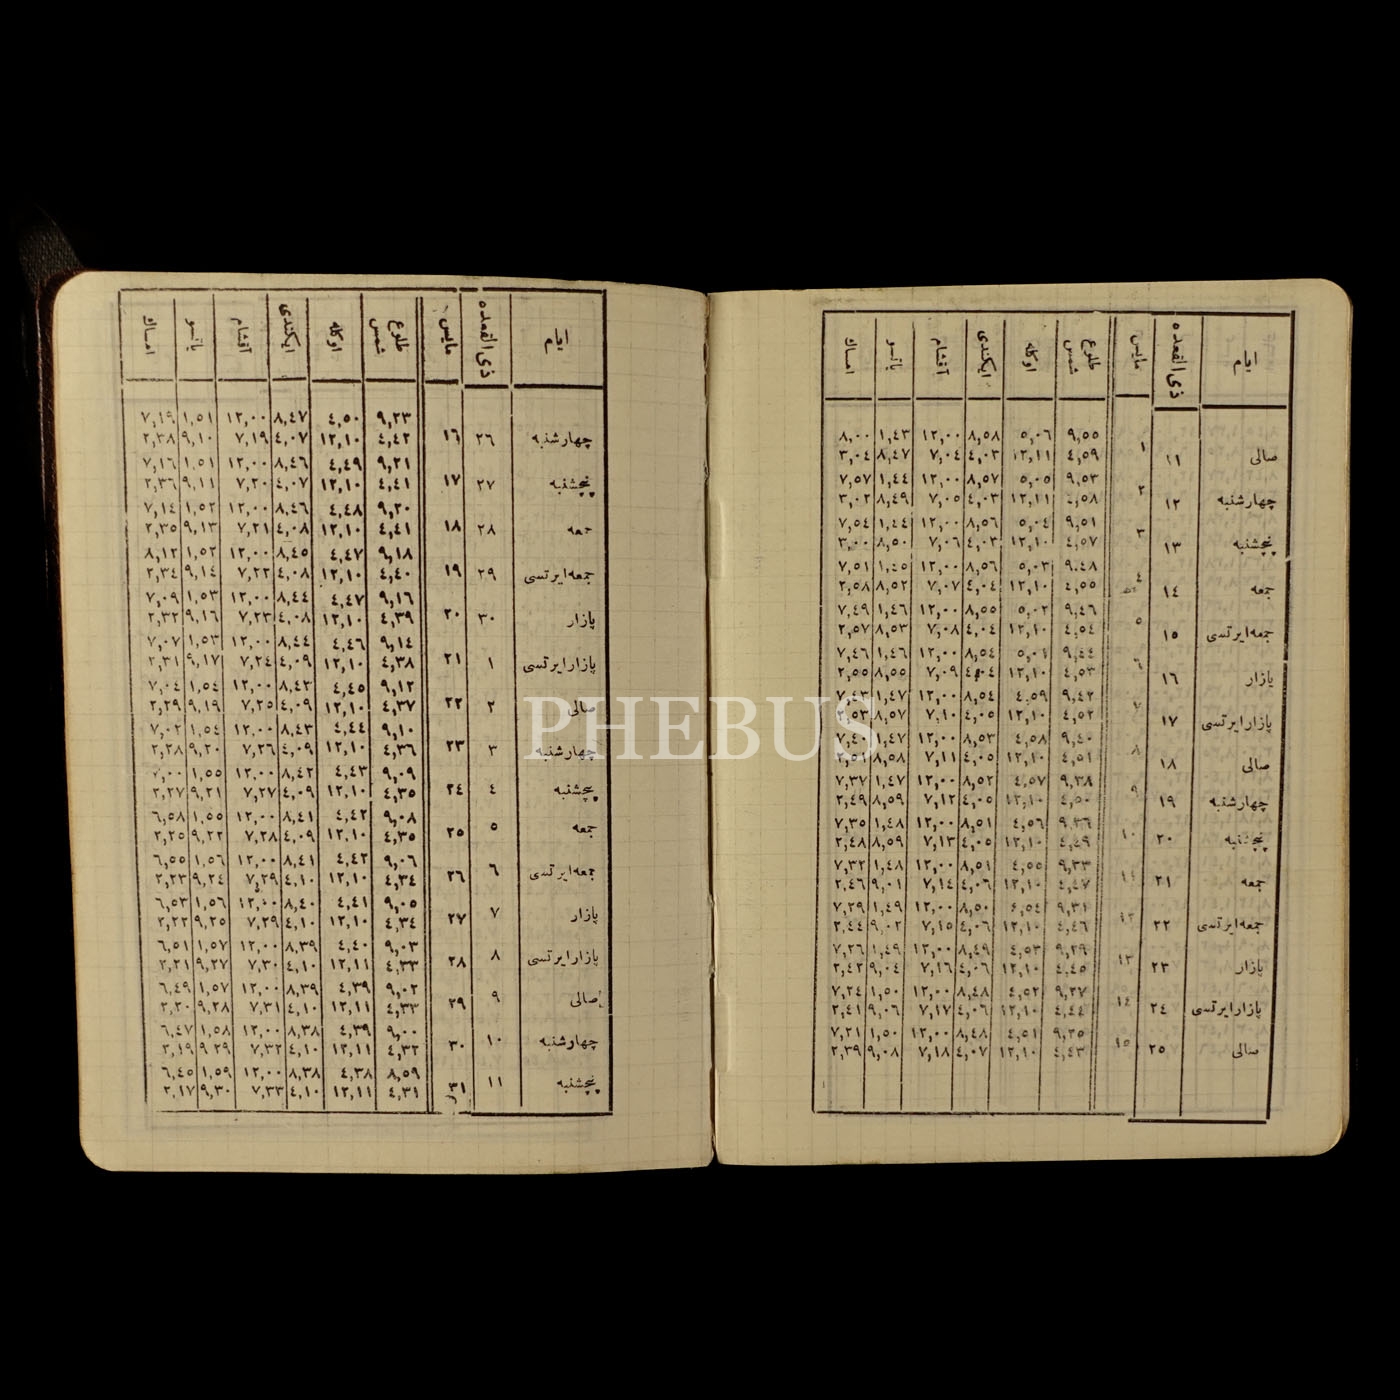 ايام ذى القعده مايس طلوع شمس اوكله ايكندى آقشام ياتسو امساك
صالى ١١ ١ ٩,٥٥ ٥,٠٦ ٨,٥٨ ١٢,٠٠ ١,٤٣ ٨,٠٠
٤,٥٩ ١٢,١١ ٤,٠٣ ٧,٠٤ ٨,٤٧ ٣,٠٤
چهارشنبه ١٢ ٢ ٩,٥٣ ٥,٠٥ ٨,٥٧ ١٢,٠٠ ١,٤٤ ٧,٥٧
٤,٥٨ ١٢,١١ ٤,٠٣ ٧,٠٥ ٨,٤٩ ٣,٠٢
پنچشنبه ١٣ ٣ ٩,٥١ ٥,٠٤ ٨,٥٦ ١٢,٠٠ ١,٤٤ ٧,٥٤
٤,٥٧ ١٢,١٠ ٤,٠٣ ٧,٠٦ ٨,٥٠ ٣,٠٠
جمعه ١٤ ٤ ٩,٤٨ ٥,٠٣ ٨,٥٦ ١٢,٠٠ ١,٤٥ ٧,٥١
٤,٥٥ ١٢,١٠ ٤,٠٤ ٧,٠٧ ٨,٥٢ ٢,٥٨
جمعه ايرتسى ١٥ ٥ ٩,٤٦ ٥,٠٢ ٨,٥٥ ١٢,٠٠ ١,٤٦ ٧,٤٩
٤,٥٤ ١٢,١٠ ٤,٠٤ ٧,٠٨ ٨,٥٣ ٢,٥٧
پازار ١٦ ٦ ٩,٤٤ ٥,٠١ ٨,٥٤ ١٢,٠٠ ١,٤٦ ٧,٤٦
٤,٥٣ ١٢,١٠ ٤,٠٤ ٧,٠٩ ٨,٥٥ ٢,٥٥
پازار ايرتسى ١٧ ٧ ٩,٤٢ ٤,٥٩ ٨,٥٤ ١٢,٠٠ ١,٤٧ ٧,٤٣
٤,٥٢ ١٢,١٠ ٤,٠٥ ٧,١٠ ٨,٥٧ ٢,٥٣
صالى ١٨ ٨ ٩,٤٠ ٤,٥٨ ٨,٥٣ ١٢,٠٠ ١,٤٧ ٧,٤٠
٤,٥١ ١٢,١٠ ٤,٠٥ ٧,١١ ٨,٥٨ ٢,٥١
چهارشنبه ١٩ ٩ ٩,٣٨ ٤,٥٧ ٨,٥٢ ١٢,٠٠ ١,٤٧ ٧,٣٧
٤,٥٠ ١٢,١٠ ٤,٠٥ ٧,١٢ ٨,٥٩ ٢,٤٩
پنچشنبه ٢٠ ١٠ ٩,٣٦ ٤,٥٦ ٨,٥١ ١٢,٠٠ ١,٤٨ ٧,٣٥
٤,٤٩ ١٢,١٠ ٤,٠٥ ٧,١٣ ٨,٥٩ ٢,٤٨
جمعه ٢١ ١١ ٩,٣٣ ٤,٥٥ ٨,٥١ ١٢,٠٠ ١,٤٨ ٧,٣٢
٤,٤٧ ١٢,١٠ ٤,٠٦ ٧,١٤ ٩,٠١ ٢,٤٦
جمعه ايرتسى ٢٢ ١٢ ٩,٣١ ٤,٥٤ ٨,٥٠ ١٢,٠٠ ١,٤٩ ٧,٢٩
٤,٤٦ ١٢,١٠ ٤,٠٦ ٧,١٥ ٩,٠٢ ٢,٤٤
پازار ٢٣ ١٣ ٩,٢٩ ٤,٥٣ ٨,٤٩ ١٢,٠٠ ١,٤٩ ٧,٢٦
٤,٤٥ ١٢,١٠ ٤,٠٦ ٧,١٦ ٩,٠٤ ٢,٤٢
پازار ايرتسى ٢٤ ١٤ ٩,٢٧ ٤,٥٢ ٨,٤٨ ١٢,٠٠ ١,٥٠ ٧,٢٤
٤,٤٤ ١٢,١٠ ٤,٠٦ ٧,١٧ ٩,٠٦ ٢,٤١
صالى ٢٥ ١٥ ٩,٢٥ ٤,٥١ ٨,٤٨ ١٢,٠٠ ١,٥٠ ٧,٢١
٤,٤٣ ١٢,١٠ ٤,٠٧ ٧,١٨ ٩,٠٨ ٢,٣٩
ايام ذى القعده مايس طلوع شمس اوكله ايكندى آقشام ياتسو امساك
چهارشنبه ٢٦ ١٦ ٩,٢٣ ٤,٥٠ ٨,٤٧ ١٢,٠٠ ١,٥١ ٧,١٩
٤,٤٢ ١٢,١٠ ٤,٠٧ ٧,١٩ ٩,١٠ ٢,٣٨
پنچشنبه ٢٧ ١٧ ٩,٢١ ٤,٤٩ ٨,٤٦ ١٢,٠٠ ١,٥١ ٧,١٦
٤,٤١ ١٢,١٠ ٤,٠٧ ٧,٢٠ ٩,١١ ٢,٣٦
جمعه ٢٨ ١٨ ٩,٢٠ ٤,٤٨ ٨,٤٦ ١٢,٠٠ ١,٥٢ ٧,١٤
٤,٤١ ١٢,١٠ ٤,٠٨ ٧,٢١ ٩,١٣ ٢,٣٥
جمعه ايرتسى ٢٩ ١٩ ٩,١٨ ٤,٤٧ ٨,٤٥ ١٢,٠٠ ١,٥٢ ٨,١٢
٤,٤٠ ١٢,١٠ ٤,٠٨ ٧,٢٢ ٩,١٤ ٢,٣٤
پازار ٣٠ ٢٠ ٩,١٦ ٤,٤٧ ٨,٤٤ ١٢,٠٠ ١,٥٣ ٧,٠٩
٤,٣٩ ١٢,١٠ ٤,٠٨ ٧,٢٣ ٩,١٦ ٢,٣٢
پازار ايرتسى ١ ٢١ ٩,١٤ ٤,٤٦ ٨,٤٤ ١٢,٠٠ ١,٥٣ ٧,٠٧
٤,٣٨ ١٢,١٠ ٤,٠٩ ٧,٢٤ ٩,١٧ ٢,٣١
صالى ٢ ٢٢ ٩,١٢ ٤,٤٥ ٨,٤٣ ١٢,٠٠ ١,٥٤ ٧,٠٤
٤,٣٧ ١٢,١٠ ٤,٠٩ ٧,٢٥ ٩,١٩ ٢,٢٩
چهارشنبه ٣ ٢٣ ٩,١٠ ٤,٤٤ ٨,٤٣ ١٢,٠٠ ١,٥٤ ٧,٠٢
٤,٣٦ ١٢,١٠ ٤,٠٩ ٧,٢٦ ٩,٢٠ ٢,٢٨
پنچشنبه ٤ ٢٤ ٩,٠٩ ٤,٤٣ ٨,٤٢ ١٢,٠٠ ١,٥٥ ٧,٠٠
٤,٣٥ ١٢,١٠ ٤,٠٩ ٧,٢٧ ٩,٢١ ٢,٢٧
جمعه ٥ ٢٥ ٩,٠٨ ٤,٤٢ ٨,٤١ ١٢,٠٠ ١,٥٥ ٦,٥٨
٤,٣٥ ١٢,١٠ ٤,٠٩ ٧,٢٨ ٩,٢٢ ٢,٢٥
جمعه ايرتسى ٦ ٢٦ ٩,٠٦ ٤,٤٢ ٨,٤١ ١٢,٠٠ ١,٥٦ ٦,٥٥
٤,٣٤ ١٢,١٠ ٤,١٠ ٧,٢٩ ٩,٢٤ ٢,٢٣
پازار ٧ ٢٧ ٩,٠٥ ٤,٤١ ٨,٤٠ ١٢,٠٠ ١,٥٦ ٦,٥٣
٤,٣٤ ١٢,١٠ ٤,١٠ ٧,٢٩ ٩,٢٥ ٢,٢٢
پازار ايرتسى ٨ ٢٨ ٩,٠٣ ٤,٤٠ ٨,٣٩ ١٢,٠٠ ١,٥٧ ٦,٥١
٤,٣٣ ١٢,١١ ٤,١٠ ٧,٣٠ ٩,٢٧ ٢,٢١
صالى ٩ ٢٩ ٩,٠٢ ٤,٣٩ ٨,٣٩ ١٢,٠٠ ١,٥٧ ٦,٤٩
٤,٣٣ ١٢,١١ ٤,١٠ ٧,٣١ ٩,٢٨ ٢,٢٠
چهارشنبه ١٠ ٣٠ ٩,٠٠ ٤,٣٩ ٨,٣٨ ١٢,٠٠ ١,٥٨ ٦,٤٧
٤,٣٢ ١٢,١١ ٤,١٠ ٧,٣٢ ٩,٢٩ ٢,١٩
پنچشنبه ١١ ٣١ ٨,٥٩ ٤,٣٨ ٨,٣٨ ١٢,٠٠ ١,٥٩ ٦,٤٥
٤,٣١ ١٢,١١ ٤,١٠ ٧,٣٣ ٩,٣٠ ٢,١٧
PHEBUS